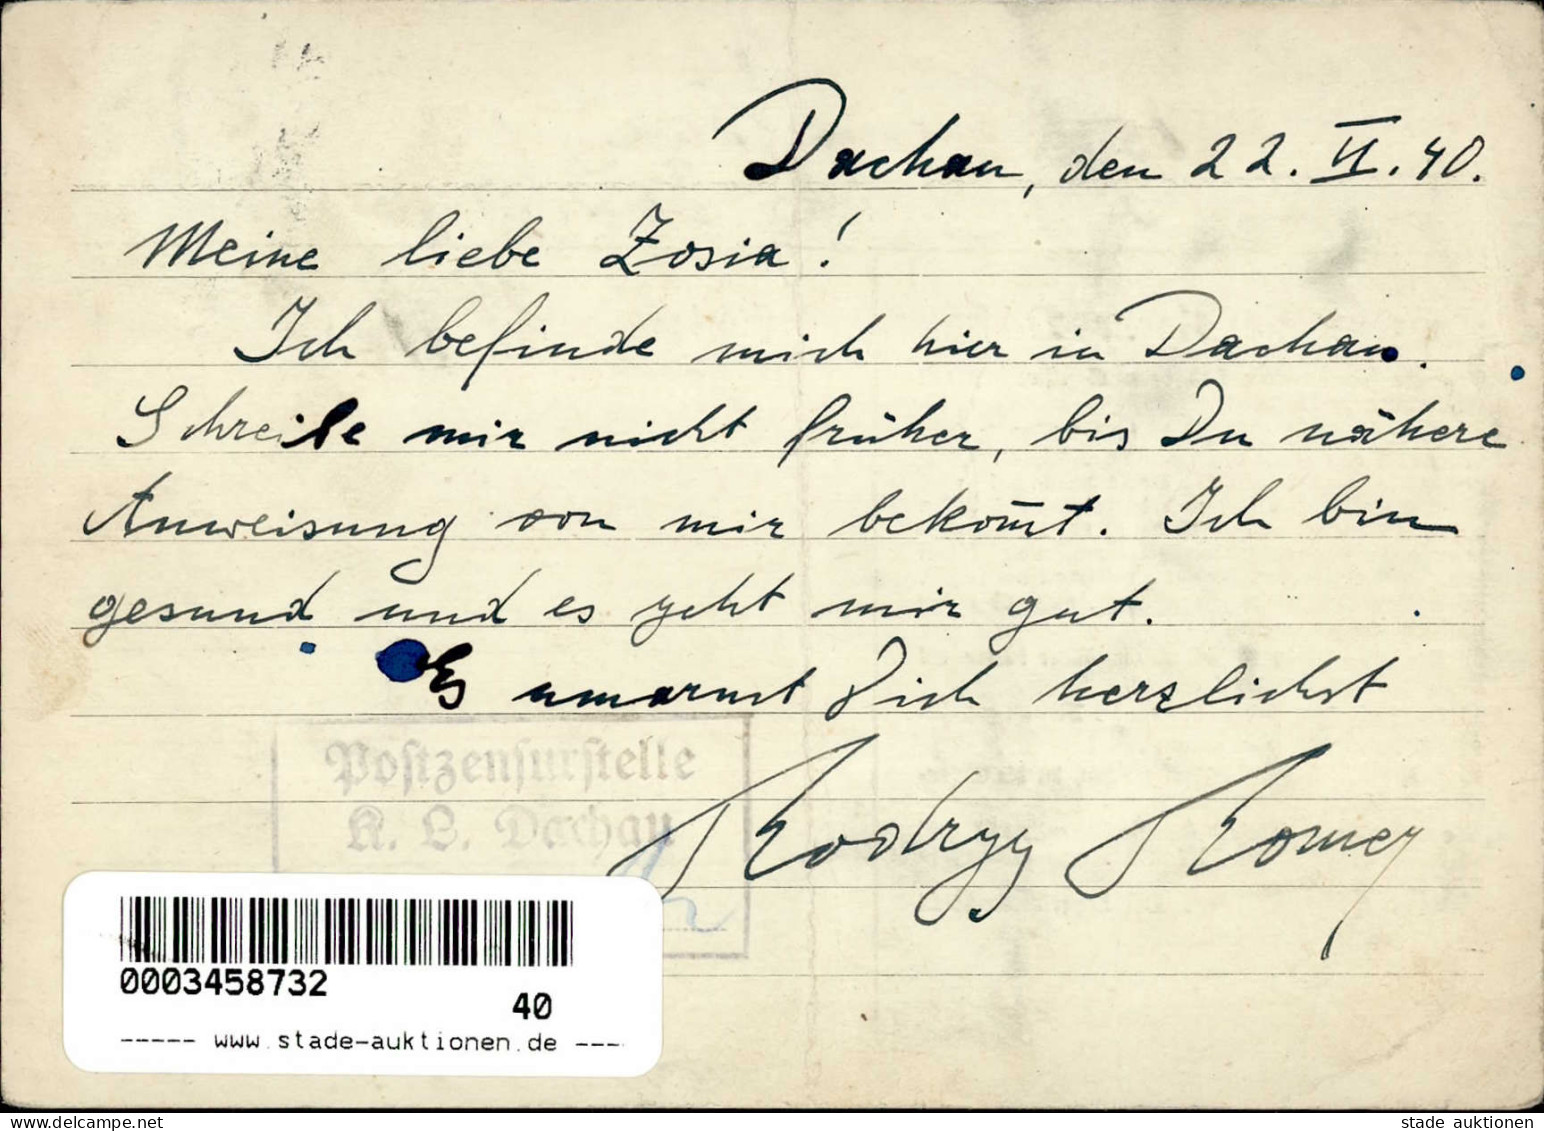 Dachau, den 22. VI. 40.
Meine liebe Zosia!
Ich befinde mich hier in Dachau.
Schreibe mir nicht früher, bis Du nähere
Anweisung von mir bekom̅t. Ich bin
gesund und es geht mir gut.
Es umarmt Dich herzlichst
Postzensurstelle
K. L. Dachau
Rodryg Romer
0003458732
40
----- www.stade-auktionen.de ----
stade auktionen